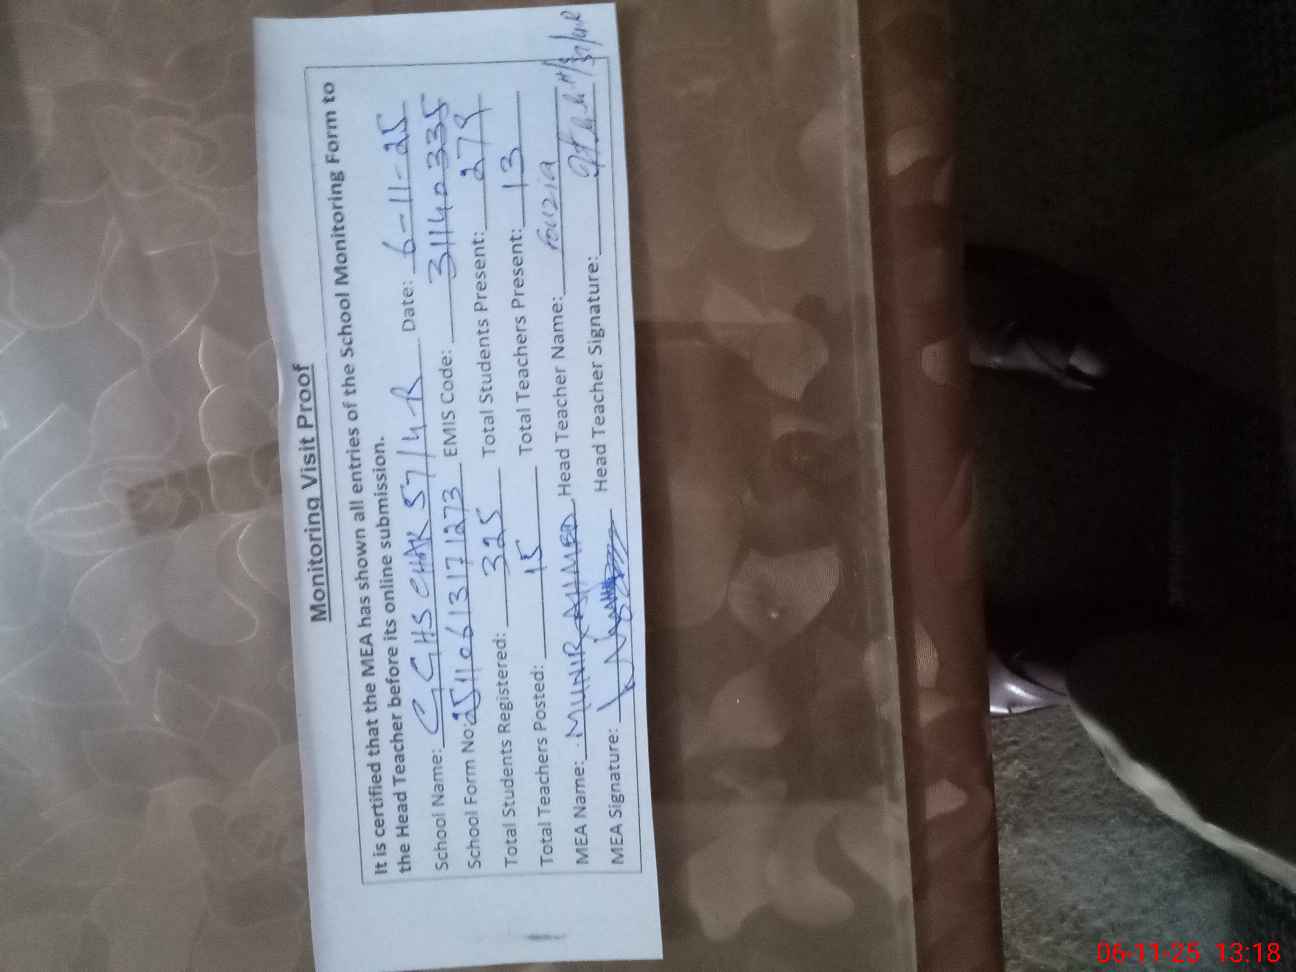 Monitoring Visit Proof
It is certified that the MEA has shown all entries of the School Monitoring Form to
the Head Teacher before its online submission.
School Name: GGHS CHAK 57/4-R Date: 6-11-25
School Form No: 25110613171273 EMIS Code: 31140335
Total Students Registered: 325 Total Students Present: 279
Total Teachers Posted: 15 Total Teachers Present: 13
MEA Name: MUNIR AHMED Head Teacher Name: Fouzia
MEA Signature: Head Teacher Signature:
06-11-25 13:18